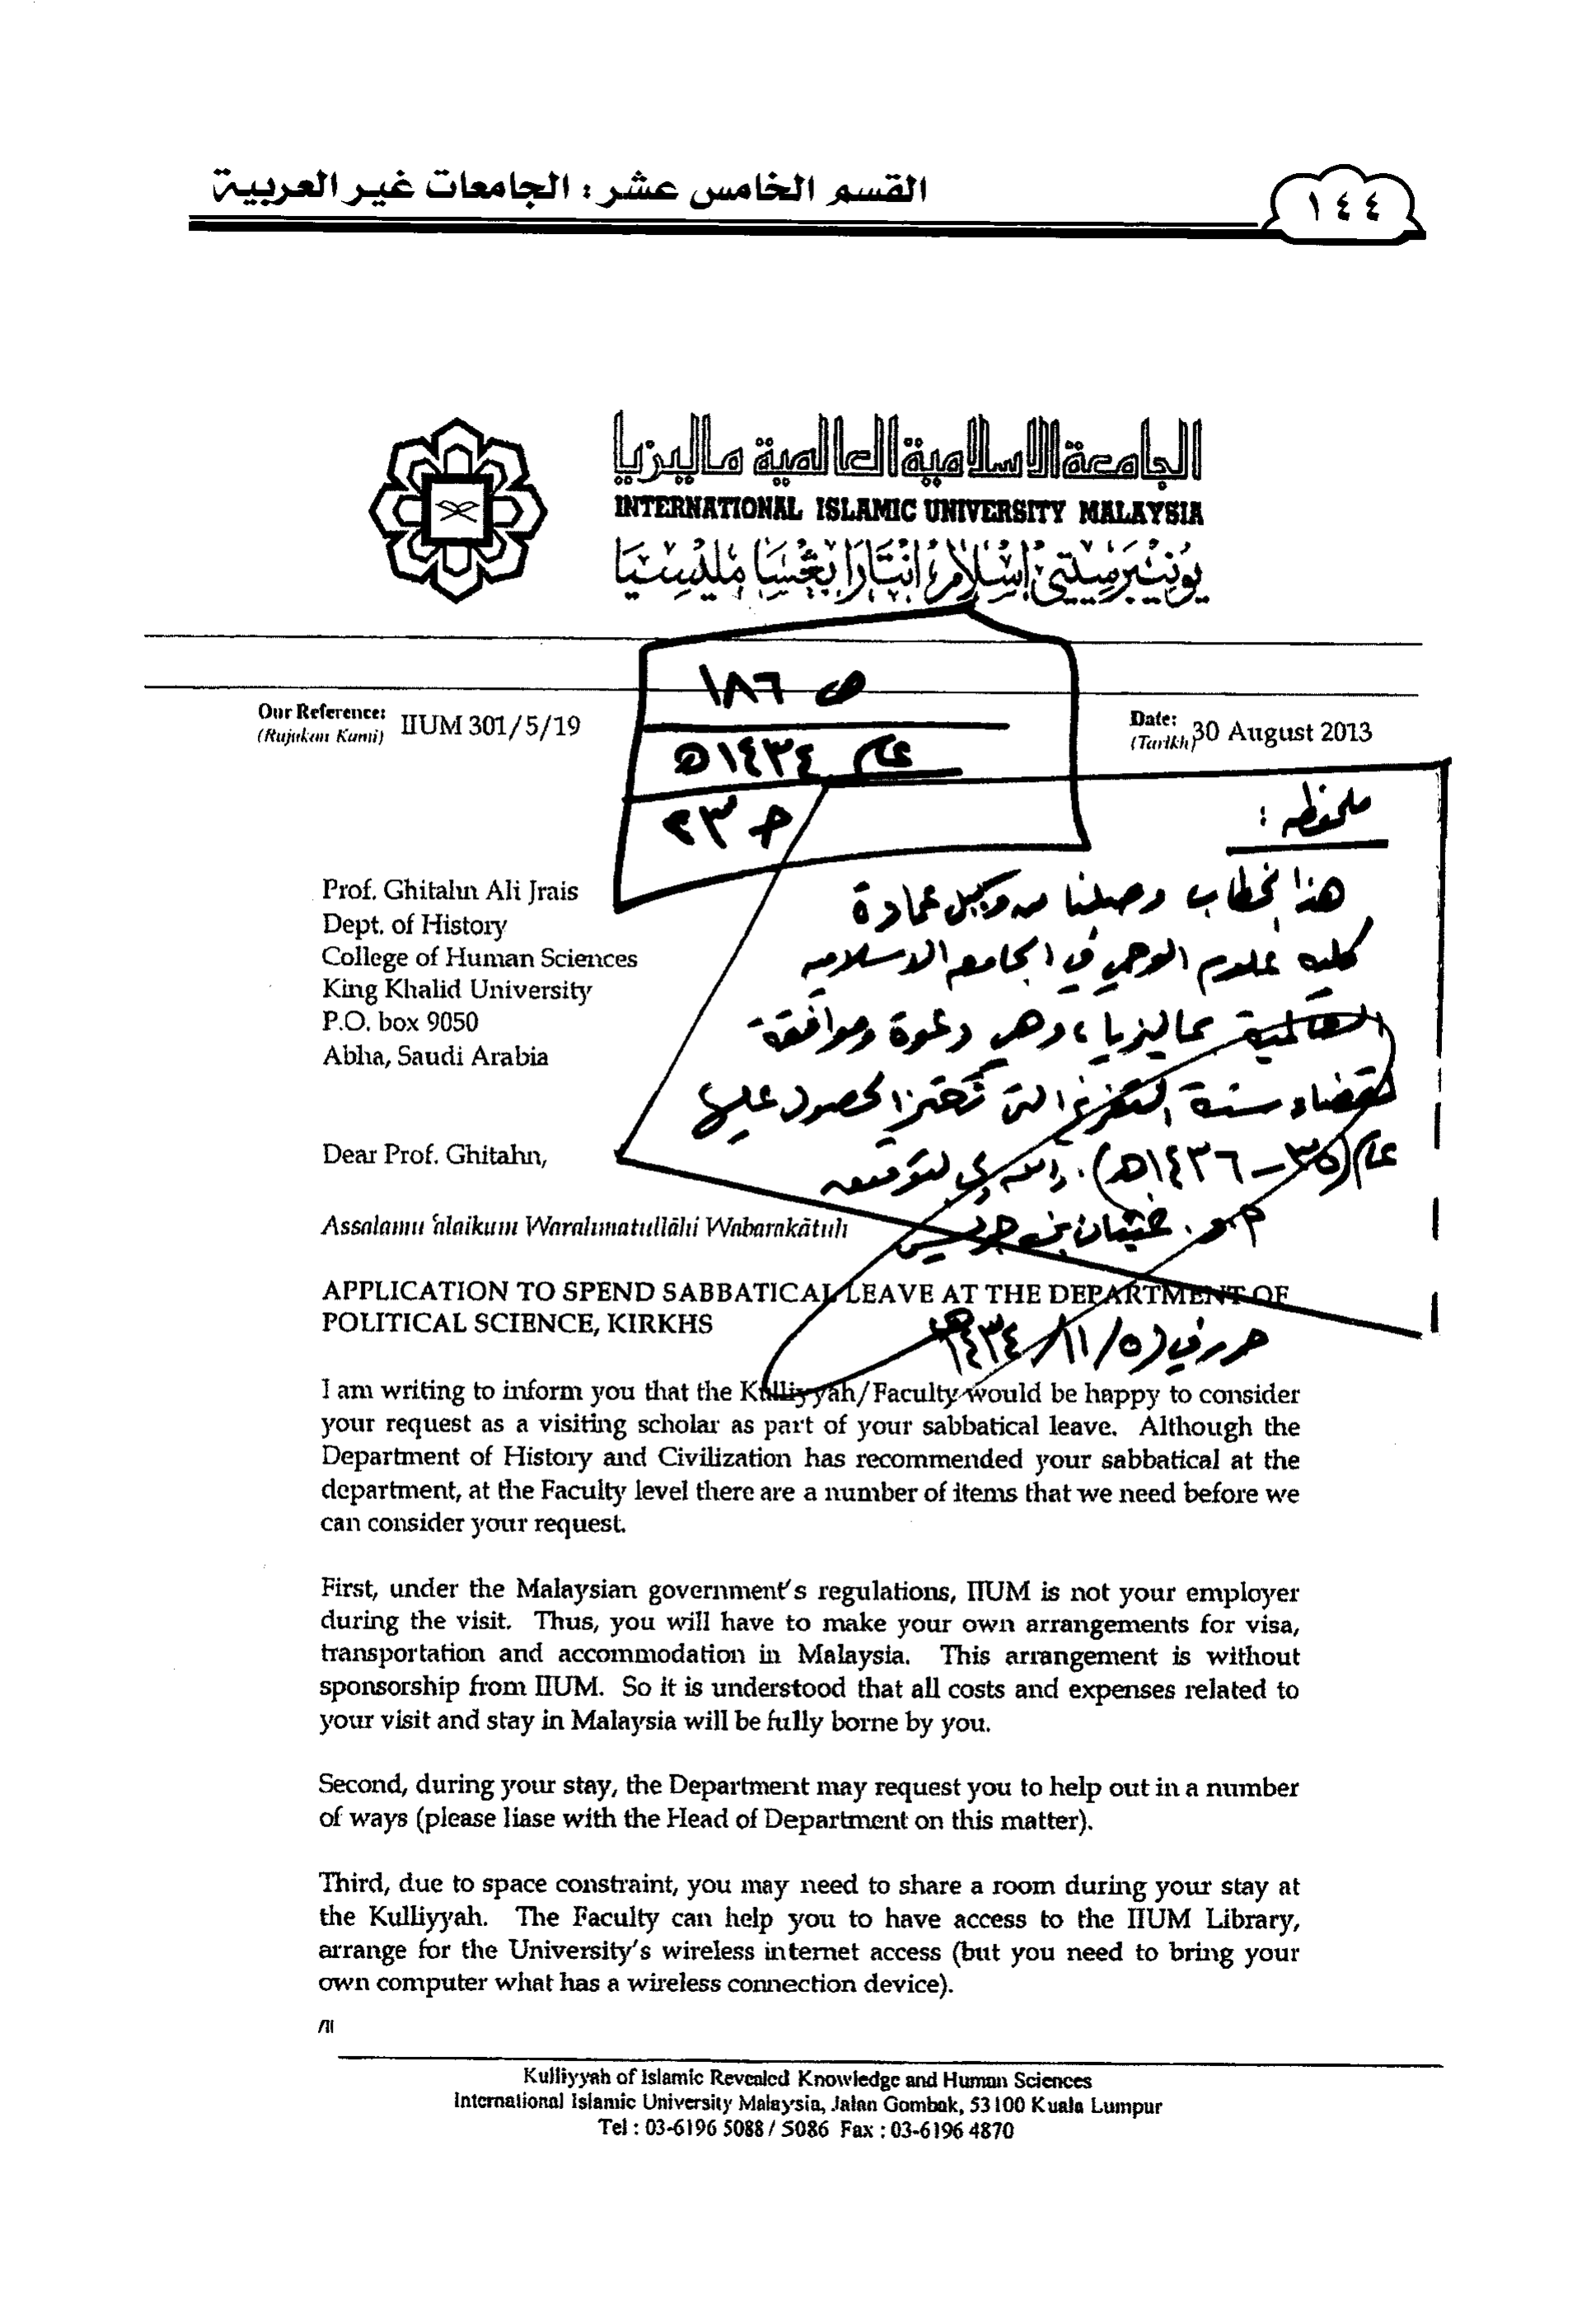 القسم الخامس عشر : الجامعات غير العربية
١٤٤
الجامعة الاسلامية العالمية ماليزيا
INTERNATIONAL ISLAMIC UNIVERSITY MALAYSIA
يونيبرسيتي اسلام انتارابغسا مليسيا
ص ١٨٦
عام ١٤٣٤ه
ج ٢٣
Our Reference: IIUM 301/5/19
(Rujukan Kami)
Date: 30 August 2013
(Tarikh)
ملحوظه :
هذا الخطاب وصلنا من وكيل عمادة
كليه علوم الوحي في الجامعه الاسلاميه
العالمية بماليزيا ، وهي دعوة وموافقة
لقضاء سنة التفرغ التي الحصول عليها
عام (٣٥ – ١٤٣٦ه) .
غيثان بن جريس
حرر في (٥/١١/١٤٣٤ه
Prof. Ghitahn Ali Jrais
Dept. of History
College of Human Sciences
King Khalid University
P.O. box 9050
Abha, Saudi Arabia
Dear Prof. Ghitahn,
Assalamu 'alaikum Warahmatullāhi Wabarakātuh
APPLICATION TO SPEND SABBATICAL LEAVE AT THE DEPARTMENT OF
POLITICAL SCIENCE, KIRKHS
I am writing to inform you that the Kulliyyah/Faculty would be happy to consider
your request as a visiting scholar as part of your sabbatical leave. Although the
Department of History and Civilization has recommended your sabbatical at the
department, at the Faculty level there are a number of items that we need before we
can consider your request.
First, under the Malaysian government's regulations, IIUM is not your employer
during the visit. Thus, you will have to make your own arrangements for visa,
transportation and accommodation in Malaysia. This arrangement is without
sponsorship from IIUM. So it is understood that all costs and expenses related to
your visit and stay in Malaysia will be fully borne by you.
Second, during your stay, the Department may request you to help out in a number
of ways (please liase with the Head of Department on this matter).
Third, due to space constraint, you may need to share a room during your stay at
the Kulliyyah. The Faculty can help you to have access to the IIUM Library,
arrange for the University's wireless internet access (but you need to bring your
own computer what has a wireless connection device).
Kulliyyah of Islamic Revealed Knowledge and Human Sciences
International Islamic University Malaysia, Jalan Gombak, 53100 Kuala Lumpur
Tel : 03-6196 5088 / 5086 Fax : 03-6196 4870